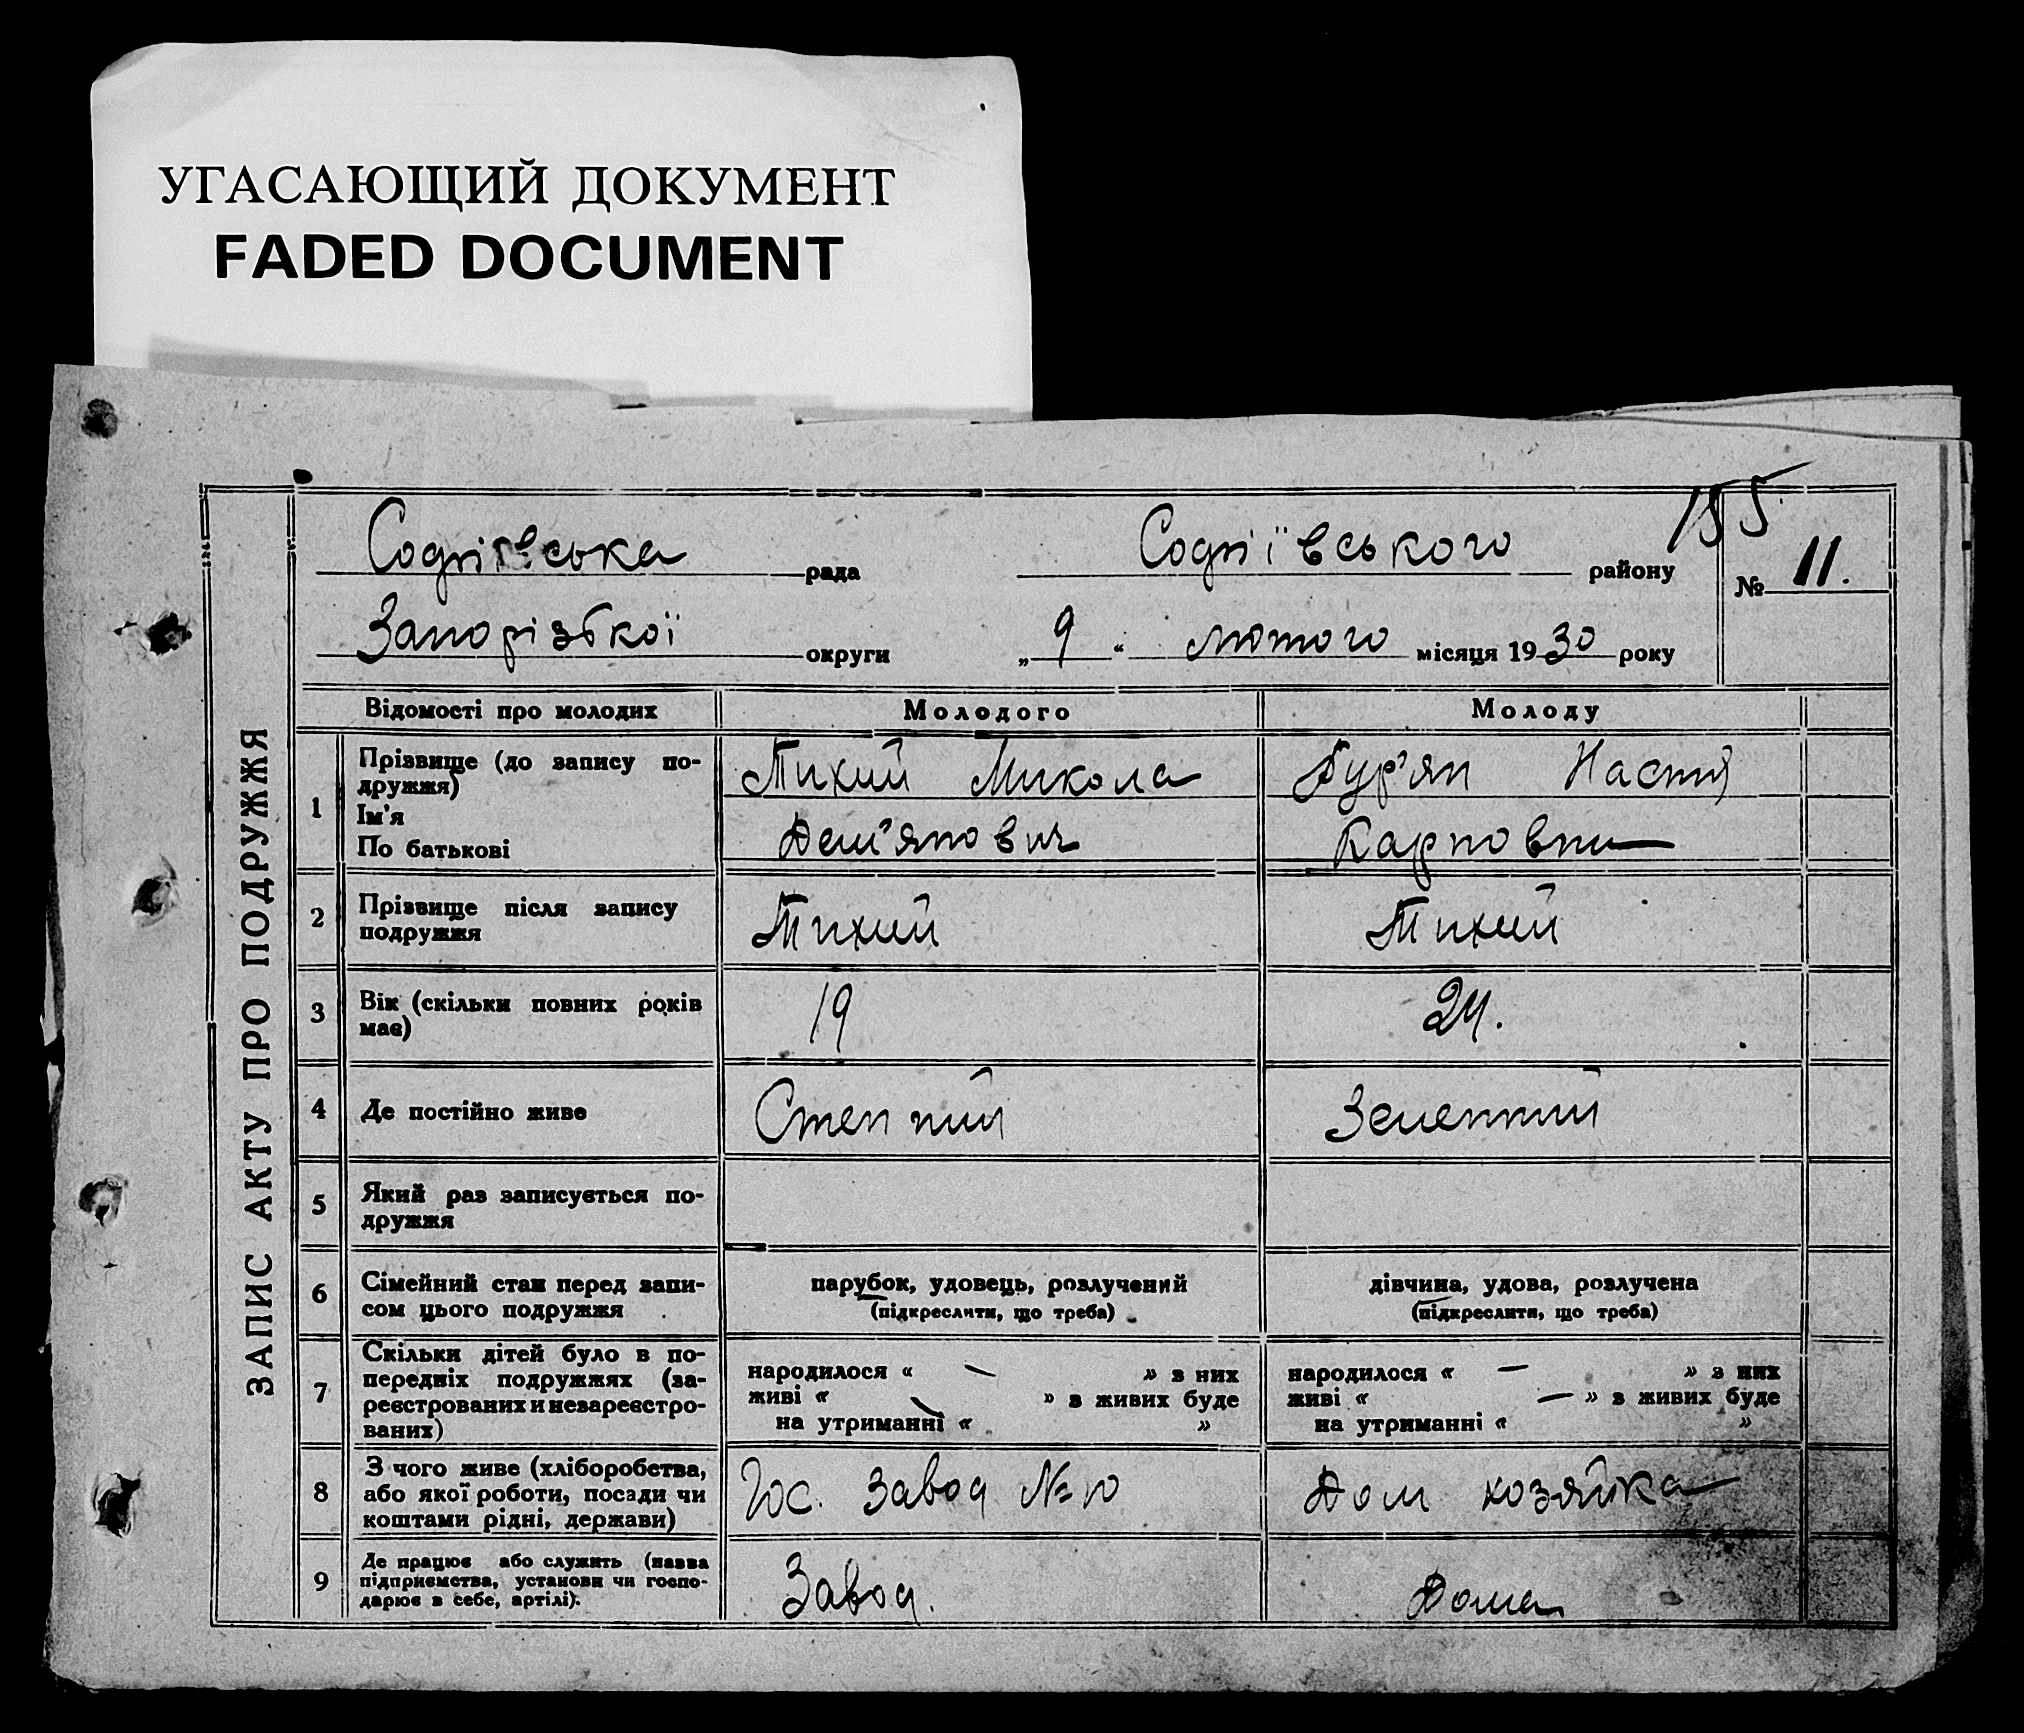 УГАСАЮЩИЙ ДОКУМЕНТ
FADED DOCUMENT
155
ЗАПИС АКТУ ПРО ПОДРУЖЖЯ
Софіївська рада Софіївського району № 11.
Запорізької округи „9“ лютого місяця 1930 року
Відомості про молодих Молодого Молоду
1 Прізвище (до запису по-
дружжя)
Ім'я
По батькові
Тихий Микола
Дем'янович
Бур'ян Настя
Карповна
2 Прізвище після запису
подружжя
Тихий Тихий
3 Вік (скільки повних років
має)
19 24.
4 Де постійно живе Степний Зелений
5 Який раз записується по-
дружжя
6 Сімейний стан перед запи-
сом цього подружжя
парубок, удовець, розлучений
(підкреслити, що треба)
дівчина, удова, розлучена
(підкреслити, що треба)
7 Скільки дітей було в по-
передніх подружжях (за-
реєстрованих и незареєстро-
ваних)
народилося « — » з них
живі « — » з живих буде
на утриманні « »
народилося « — » з них
живі « — » з живих буде
на утриманні « »
8 З чого живе (хліборобства,
або якої роботи, посади чи
коштами рідні, держави)
Гос. Завод № 10
Дом хозяйка
9 Де працює або служить (назва
підприємства, установи чи госпо-
дарює в себе, артілі).
Завод.
Дома